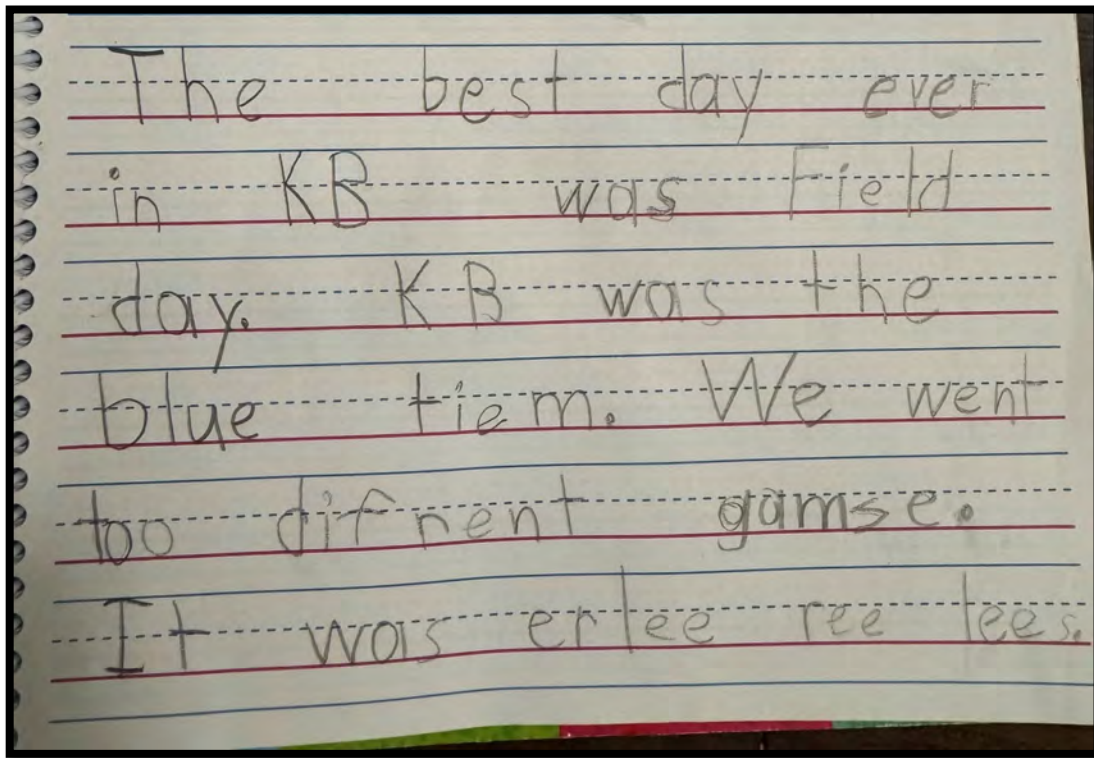 The best day ever
in KB was Field
day. KB was the
blue tiem. We went
too difrent gamse.
It was erlee ree lees.